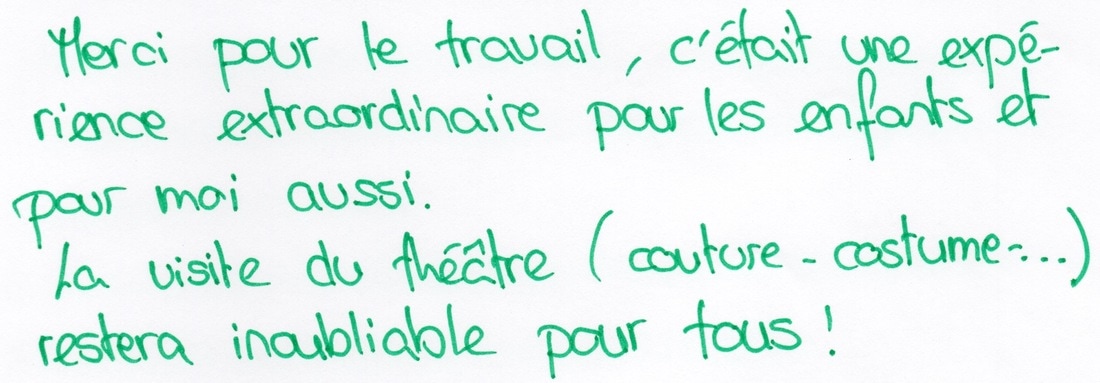 Merci pour le travail, c'était une expé-
rience extraordinaire pour les enfants et
pour moi aussi.
La visite du théâtre (couture - costume-...)
restera inoubliable pour tous !